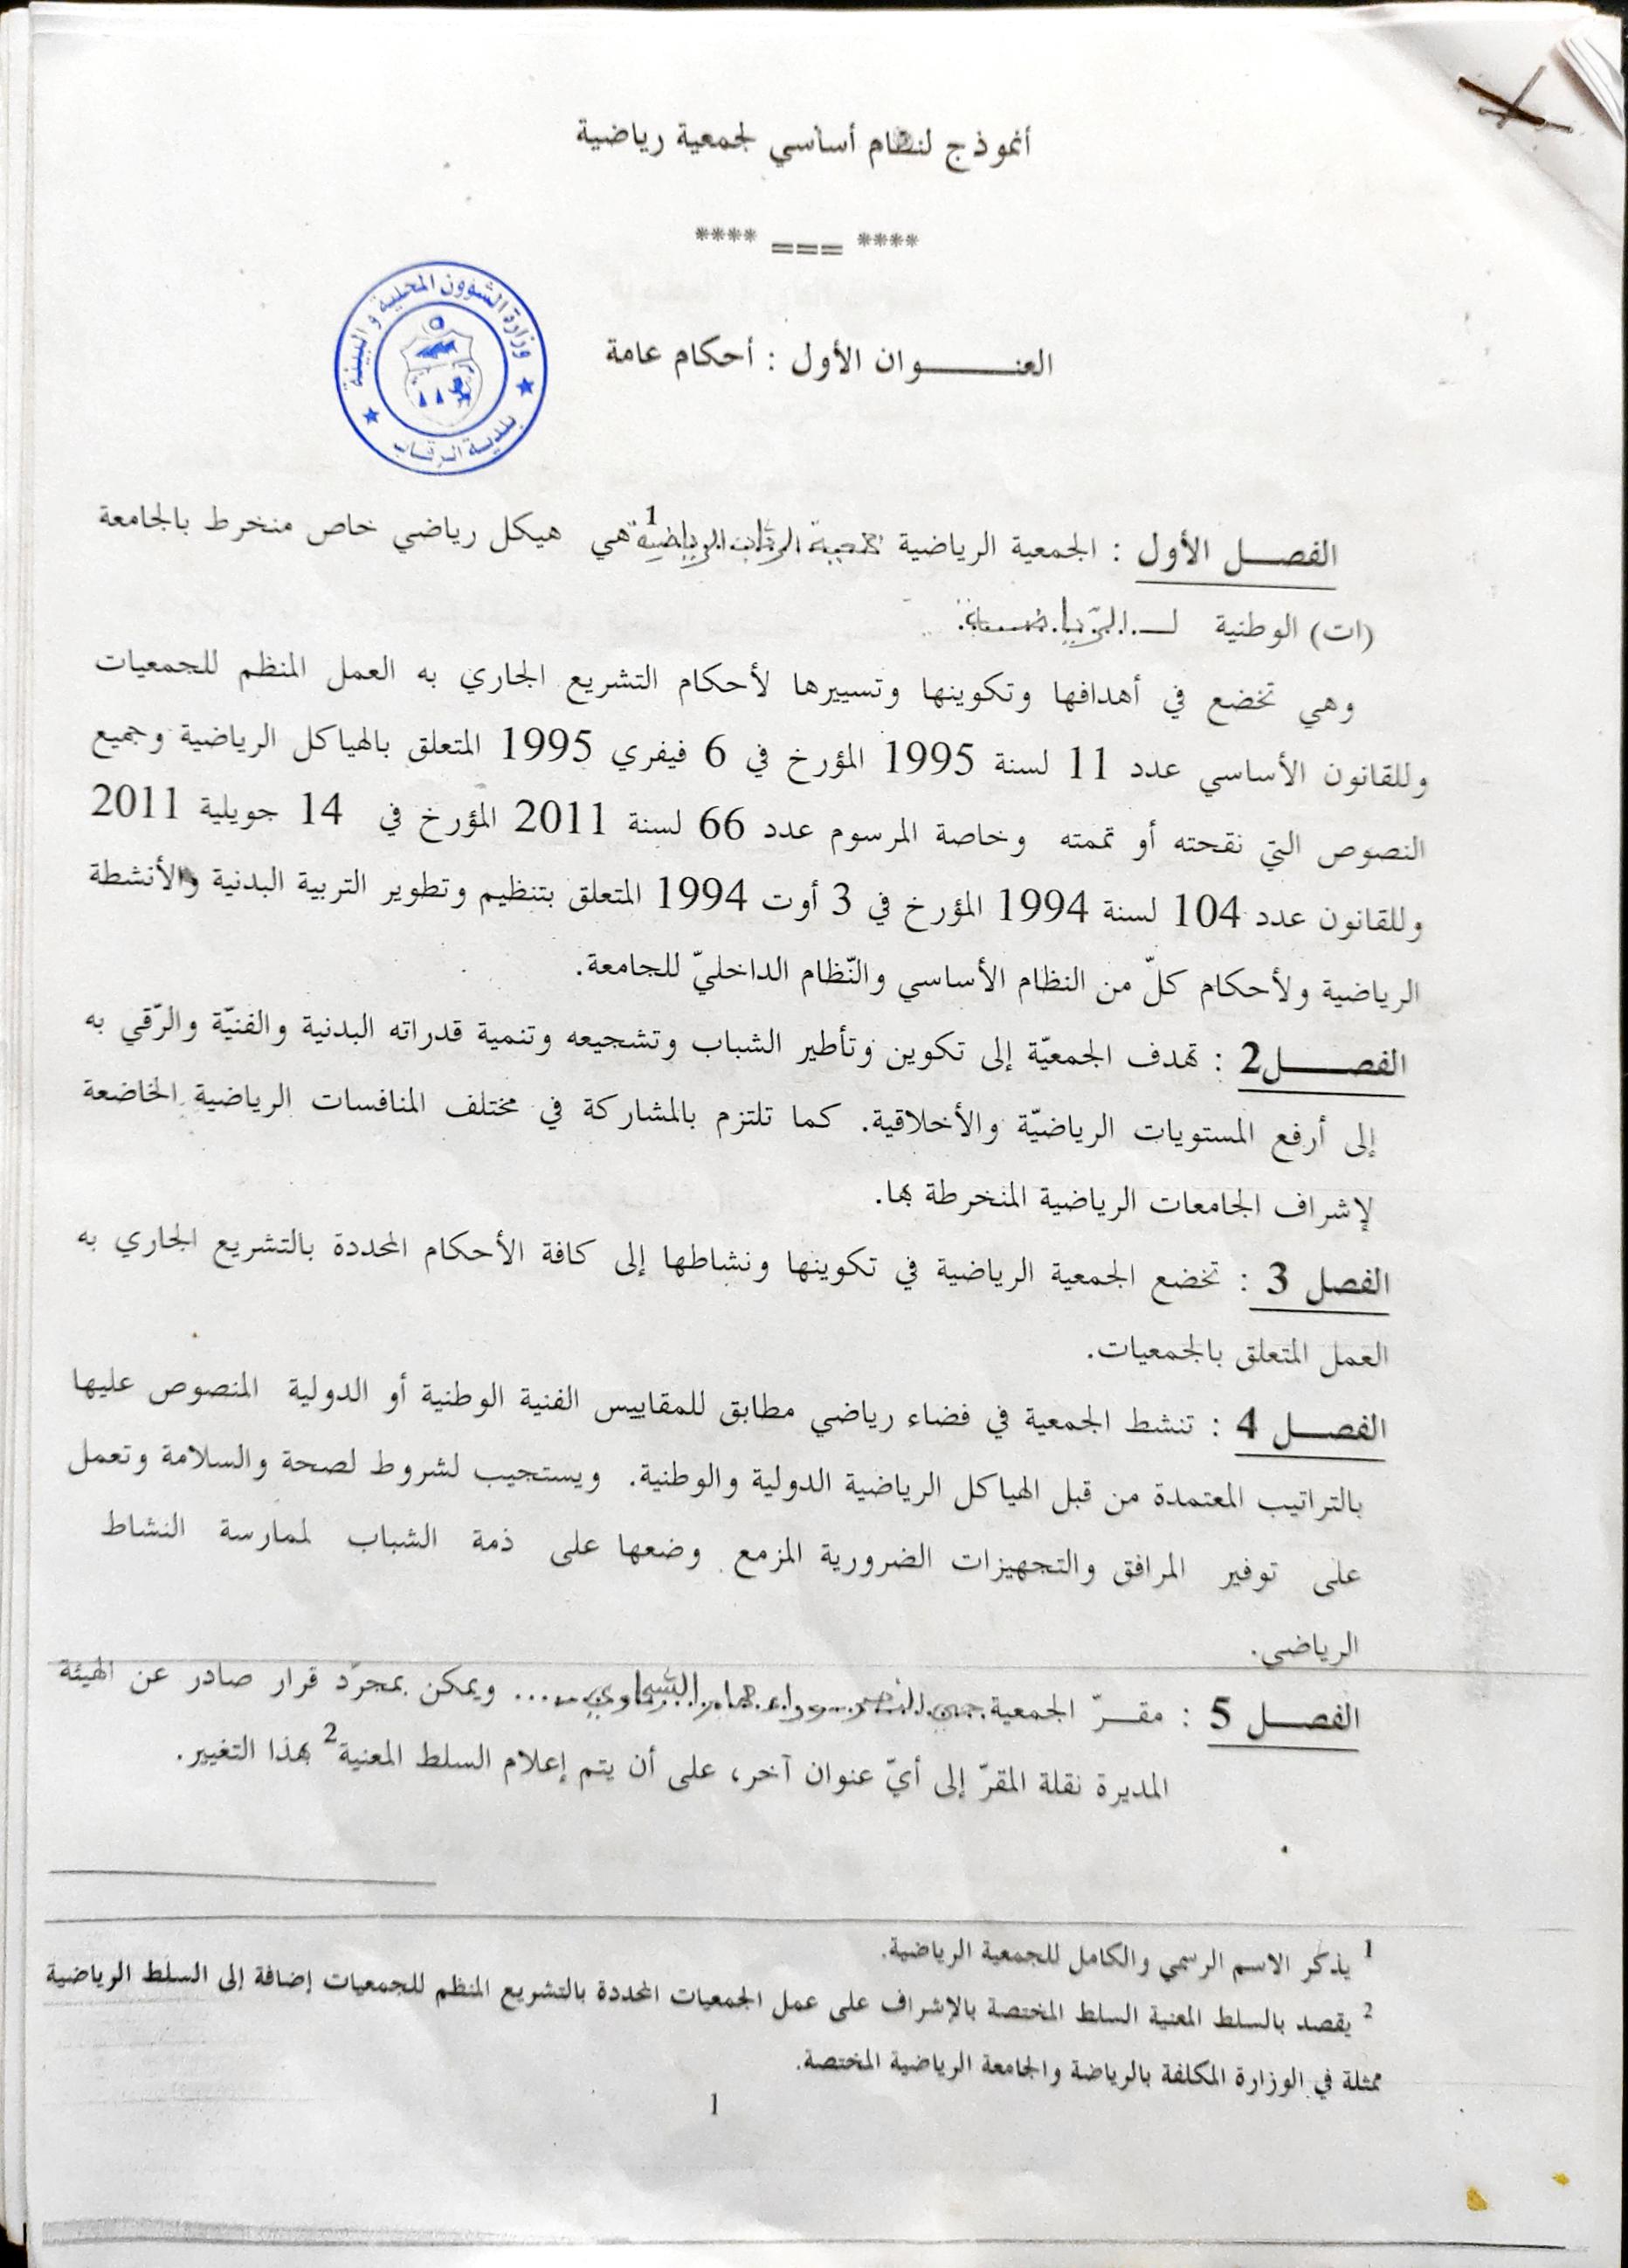 أنموذج لنظام أساسي لجمعية رياضية
**** === ****
وزارة الشؤون المحلية و البيئة
بلدية الرقاب
العنـــــــوان الأول : أحكام عامة
الفصـــل الأول : الجمعية الرياضية جمعية الرقاب الرياضية1 هي هيكل رياضي خاص منخرط بالجامعة
(ات) الوطنية لــ..الرياضـــة..
وهي تخضع في أهدافها وتكوينها وتسييرها لأحكام التشريع الجاري به العمل المنظم للجمعيات
وللقانون الأساسي عدد 11 لسنة 1995 المؤرخ في 6 فيفري 1995 المتعلق بالهياكل الرياضية وجميع
النصوص التي نقحته أو تممته وخاصة المرسوم عدد 66 لسنة 2011 المؤرخ في 14 جويلية 2011
وللقانون عدد 104 لسنة 1994 المؤرخ في 3 أوت 1994 المتعلق بتنظيم وتطوير التربية البدنية والأنشطة
الرياضية ولأحكام كلّ من النظام الأساسي والنّظام الداخليّ للجامعة.
الفصـــــل2 : تهدف الجمعيّة إلى تكوين وتأطير الشباب وتشجيعه وتنمية قدراته البدنية والفنيّة والرّقي به
إلى أرفع المستويات الرياضيّة والأخلاقية. كما تلتزم بالمشاركة في مختلف المنافسات الرياضية الخاضعة
لإشراف الجامعات الرياضية المنخرطة بها.
الفصل 3 : تخضع الجمعية الرياضية في تكوينها ونشاطها إلى كافة الأحكام المحددة بالتشريع الجاري به
العمل المتعلق بالجمعيات.
الفصـــل 4 : تنشط الجمعية في فضاء رياضي مطابق للمقاييس الفنية الوطنية أو الدولية المنصوص عليها
بالتراتيب المعتمدة من قبل الهياكل الرياضية الدولية والوطنية. ويستجيب لشروط لصحة والسلامة وتعمل
على توفير المرافق والتجهيزات الضرورية المزمع وضعها على ذمة الشباب لممارسة النشاط
الرياضي.
الفصـــل 5 : مقـــرّ الجمعية حي النصر ... ويمكن بمجرّد قرار صادر عن الهيئة
المديرة نقلة المقرّ إلى أيّ عنوان آخر، على أن يتم إعلام السلط المعنية2 بهذا التغيير.
1 يذكر الاسم الرسمي والكامل للجمعية الرياضية.
2 يقصد بالسلط المعنية السلط المختصة بالإشراف على عمل الجمعيات المحددة بالتشريع المنظم للجمعيات إضافة إلى السلط الرياضية
ممثلة في الوزارة المكلفة بالرياضة والجامعة الرياضية المختصة.
1